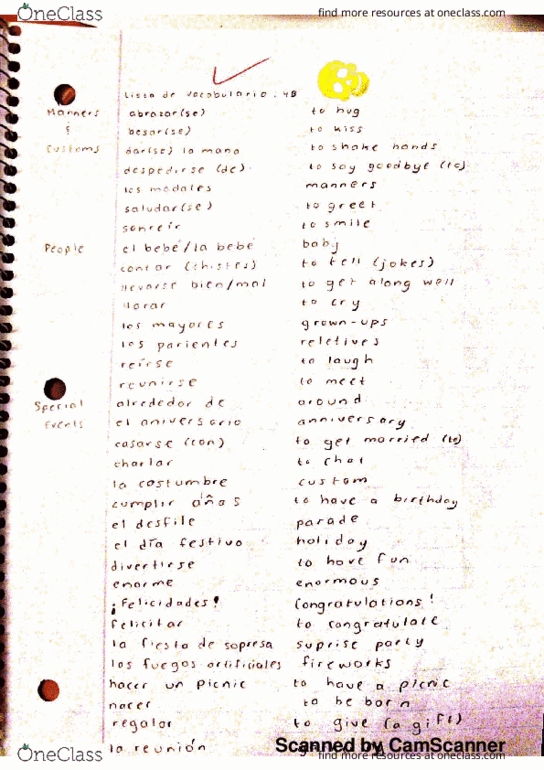 OneClass find more resources at oneclass.com
Lista de vocabulario. 4B
Manners abrazar(se) to hug
& besar(se) to kiss
Customs dar(se) la mano to shake hands
despedirse (de) to say goodbye (to)
los modales manners
saludar(se) to greet
sonreír to smile
People el bebé/la bebé baby
contar (chistes) to tell (jokes)
llevarse bien/mal to get along well
llorar to cry
los mayores grown-ups
los parientes reletives
reírse to laugh
reunirse to meet
Special alrededor de around
Events el aniversario anniversary
casarse (con) to get married (to)
charlar to chat
la costumbre custom
cumplir años to have a birthday
el desfile parade
el día festivo holiday
divertirse to have fun
enorme enormous
¡Felicidades! Congratulations!
felicitar to congratulate
la fiesta de sopresa suprise party
los fuegos artificiales fireworks
hacer un picnic to have a picnic
nacer to be born
regalar to give (a gift)
la reunión
Scanned by CamScanner
OneClass find more resources at oneclass.com